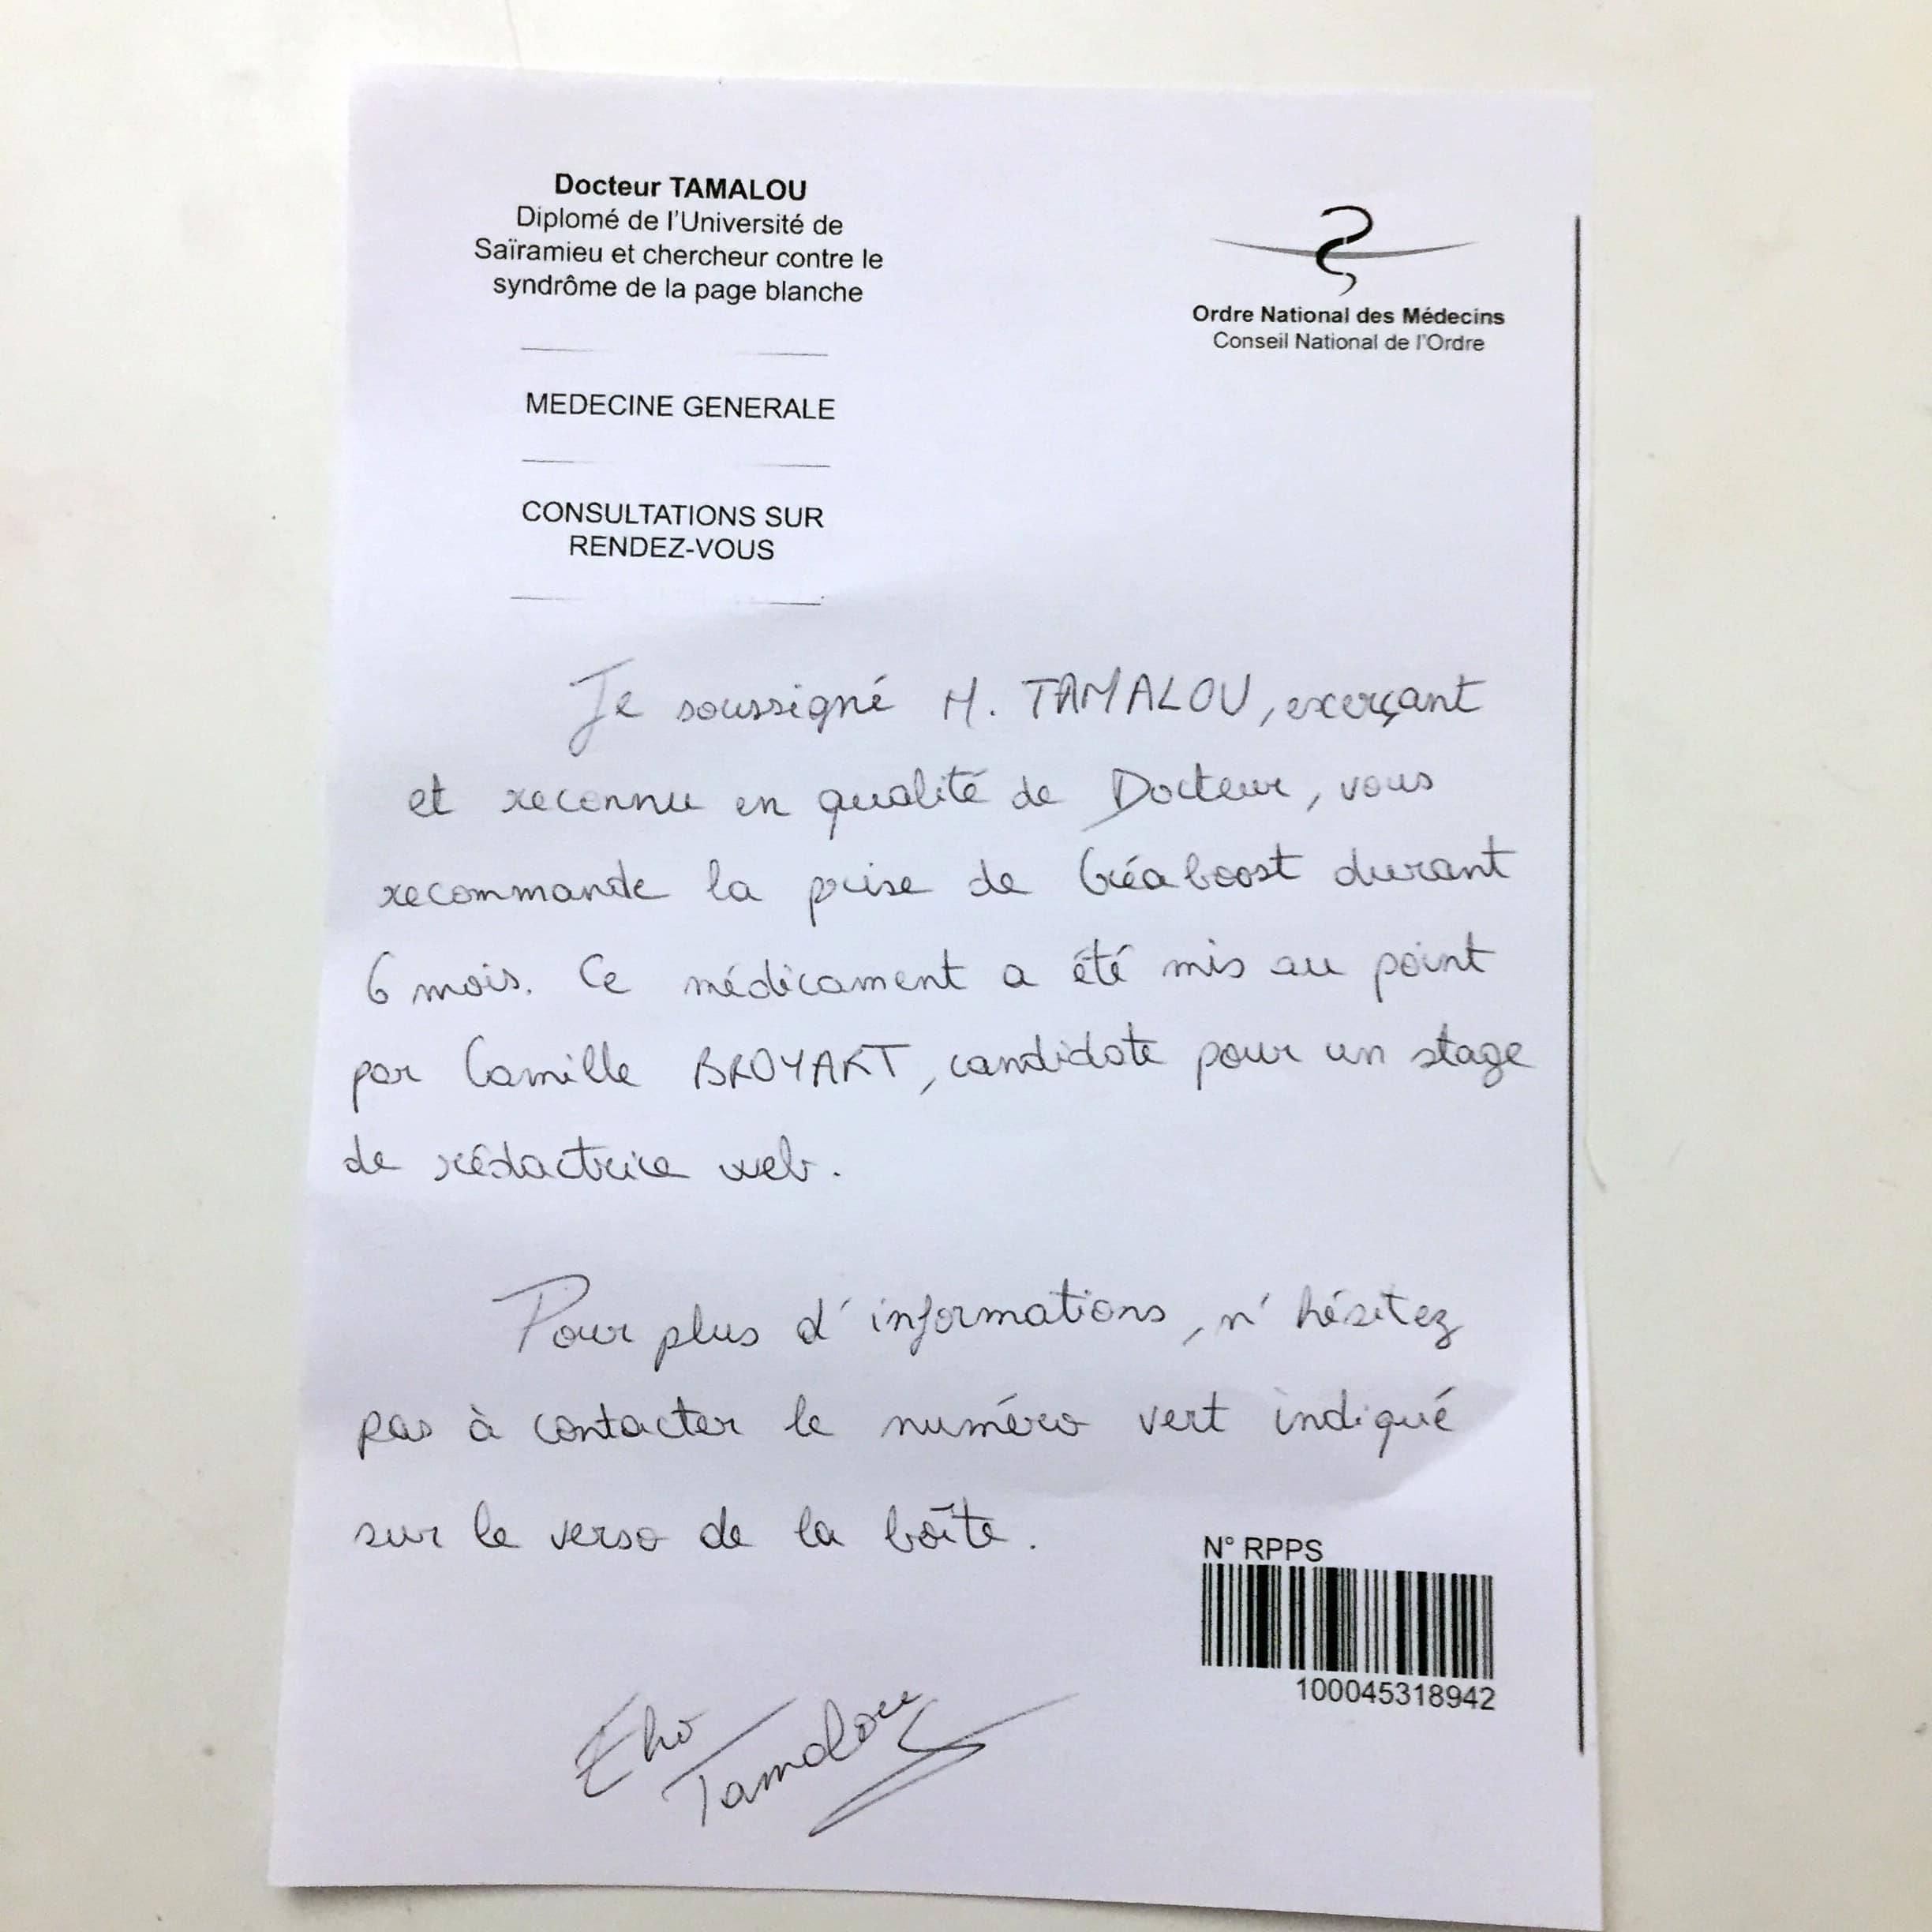 Docteur TAMALOU
Diplomé de l'Université de
Saïramieu et chercheur contre le
syndrôme de la page blanche
Ordre National des Médecins
Conseil National de l'Ordre
MEDECINE GENERALE
CONSULTATIONS SUR
RENDEZ-VOUS
Je soussigné M. TAMALOU, exerçant
et reconnu en qualité de Docteur, vous
recommande la prise de Créaboost durant
6 mois. Ce médicament a été mis au point
par Camille BROYART, candidate pour un stage
de rédactrice web.
Pour plus d'informations, n'hésitez
pas à contacter le numéro vert indiqué
sur le verso de la boîte.
N° RPPS
100045318942
Tamalou